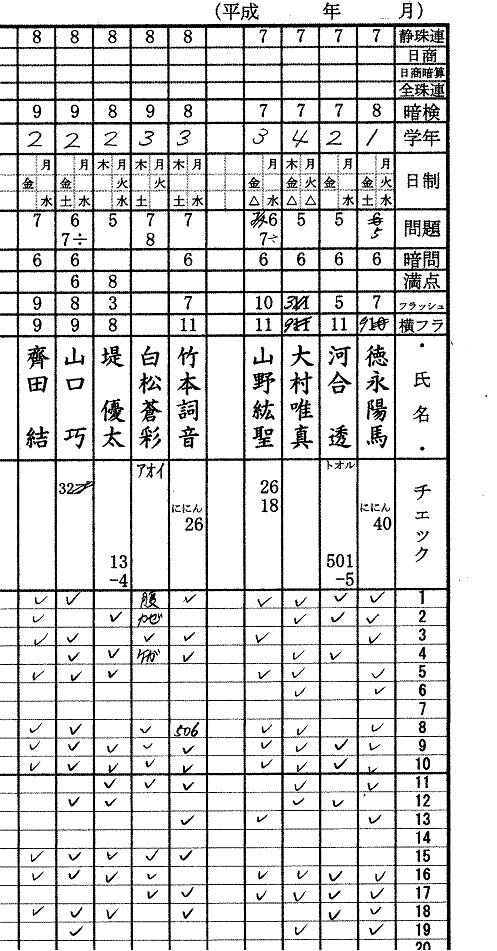 (平成 年 月)
8 8 8 8 8 7 7 7 7 静珠連
日商
日商暗算
全珠連
9 9 8 9 8 7 7 7 8 暗検
2 2 2 3 3 3 4 2 1 学年
月 月 木月 木月 月 月 木月 月 月 日制
金 金 火 火 金 金火 金 金火
水 土水 水 土水 △水 △△ 水 土水
7 6 5 7 7 6 5 5 問題
7÷ 8 7÷ 5
6 6 6 6 6 6 6 暗問
6 8 満点
9 8 3 7 10 5 7 フラッシュ
9 9 8 11 11 11 横フラ
齊田結 山口巧 堤優太 白松蒼彩 竹本詞音 山野紘聖 大村唯真 河合透 徳永陽馬 ・氏名・
アオイ トオル チェック
32 26
ににん 18 ににん
26 40
13 501
-4 -5
✓ ✓ 腹 ✓ ✓ ✓ ✓ ✓ 1
✓ ✓ カゼ ✓ ✓ ✓ 2
✓ ✓ ✓ ✓ ✓ ✓ 3
✓ ✓ ケガ ✓ ✓ ✓ 4
✓ ✓ ✓ ✓ ✓ ✓ 5
✓ ✓ 6
7
✓ ✓ ✓ 506 ✓ ✓ ✓ 8
✓ ✓ ✓ ✓ ✓ ✓ ✓ ✓ ✓ 9
✓ ✓ ✓ ✓ ✓ ✓ ✓ ✓ ✓ 10
✓ ✓ ✓ ✓ ✓ 11
✓ ✓ ✓ ✓ 12
✓ ✓ ✓ 13
14
✓ ✓ ✓ ✓ ✓ 15
✓ ✓ ✓ ✓ ✓ ✓ ✓ ✓ 16
✓ ✓ ✓ ✓ ✓ ✓ 17
✓ ✓ ✓ ✓ ✓ ✓ 18
✓ ✓ ✓ 19
20